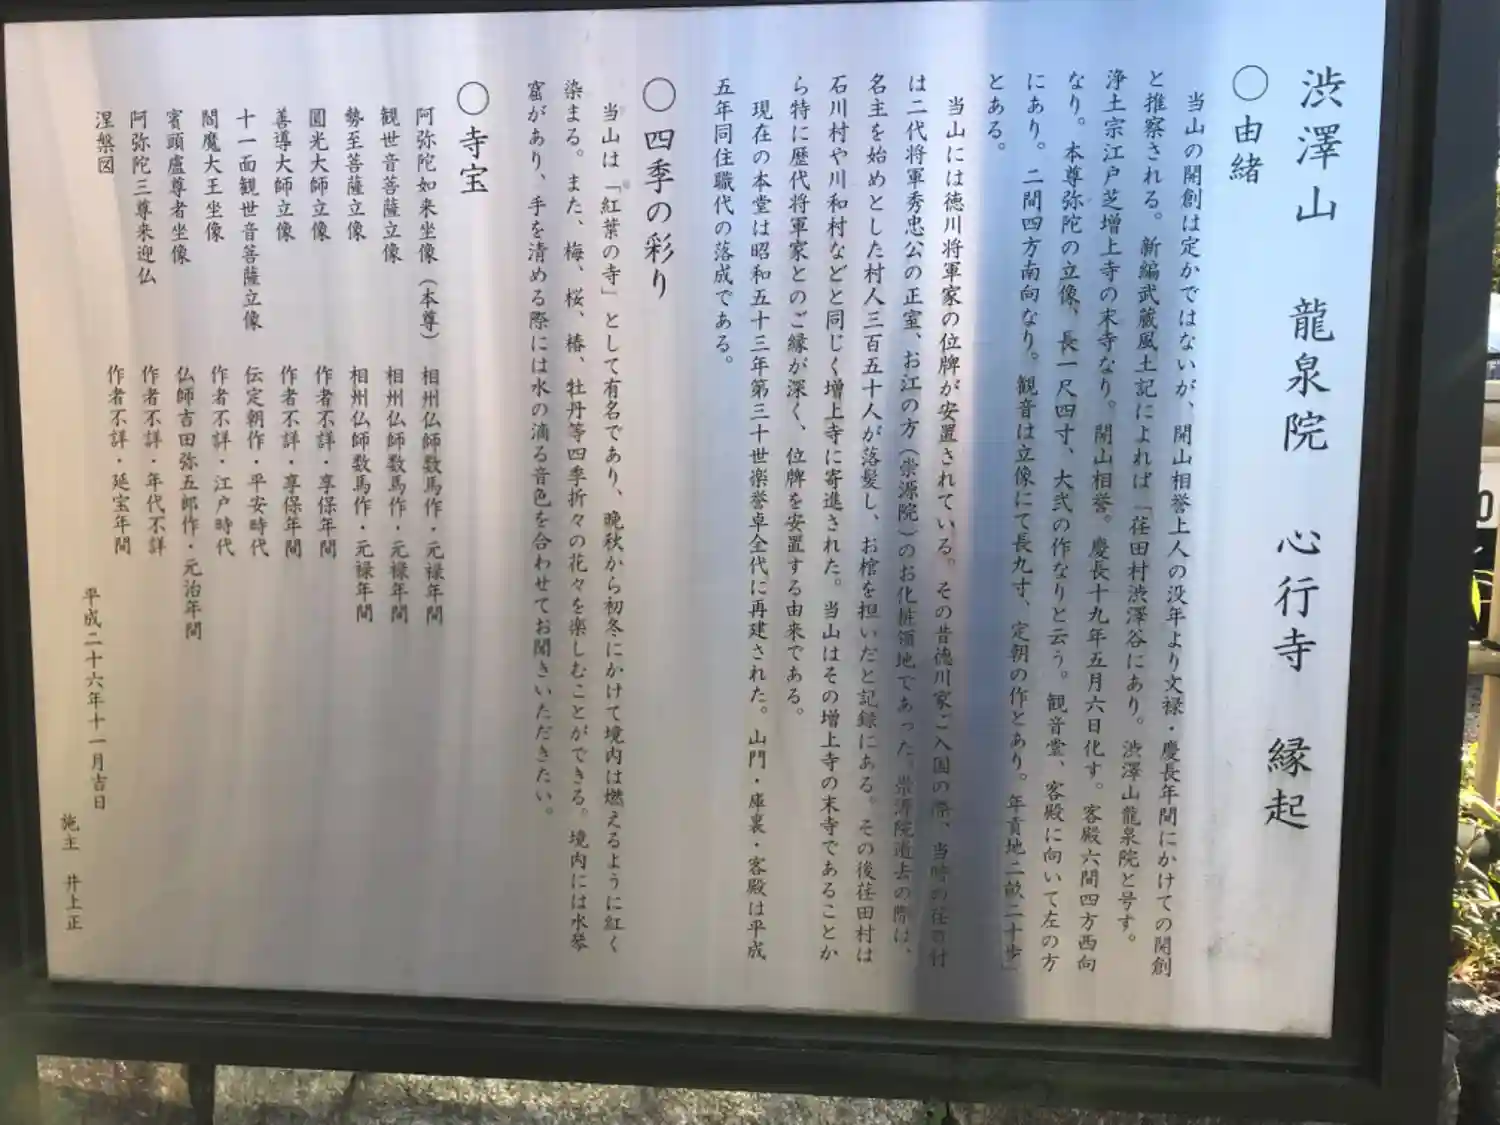 渋澤山　龍泉院　心行寺　縁起
〇由緒
当山の開創は定かではないが、開山相誉上人の没年より文禄・慶長年間にかけての開創
と推察される。新編武蔵風土記によれば「荏田村渋澤谷にあり。渋澤山龍泉院と号す。
浄土宗江戸芝増上寺の末寺なり。開山相誉。慶長十九年五月六日化す。客殿六間四方西向
なり。本尊弥陀の立像、長一尺四寸、大弐の作なりと云う。観音堂、客殿に向いて左の方
にあり。二間四方南向なり。観音は立像にて長九寸、定朝の作とあり。年貢地二畝二十歩」
とある。
当山には徳川将軍家の位牌が安置されている。その昔徳川家ご入国の際、当時の荏田村
は二代将軍秀忠公の正室、お江の方（崇源院）のお化粧領地であった。崇源院逝去の際は、
名主を始めとした村人三百五十人が落髪し、お棺を担いだと記録にある。その後荏田村は
石川村や川和村などと同じく増上寺に寄進された。当山はその増上寺の末寺であることか
ら特に歴代将軍家とのご縁が深く、位牌を安置する由来である。
現在の本堂は昭和五十三年第三十世楽誉卓全代に再建された。山門・庫裏・客殿は平成
五年同住職代の落成である。
〇四季の彩り
当山は「紅葉の寺」として有名であり、晩秋から初冬にかけて境内は燃えるように紅く
染まる。また、梅、桜、椿、牡丹等四季折々の花々を楽しむことができる。境内には水琴
窟があり、手を清める際には水の滴る音色を合わせてお聞きいただきたい。
〇寺宝
阿弥陀如来坐像（本尊）　相州仏師数馬作・元禄年間
観世音菩薩立像　相州仏師数馬作・元禄年間
勢至菩薩立像　相州仏師数馬作・元禄年間
圓光大師立像　作者不詳・享保年間
善導大師立像　作者不詳・享保年間
十一面観世音菩薩立像　伝定朝作・平安時代
閻魔大王坐像　作者不詳・江戸時代
賓頭盧尊者坐像　仏師吉田弥五郎作・元治年間
阿弥陀三尊来迎仏　作者不詳・年代不詳
涅槃図　作者不詳・延宝年間
平成二十六年十一月吉日
施主　井上正